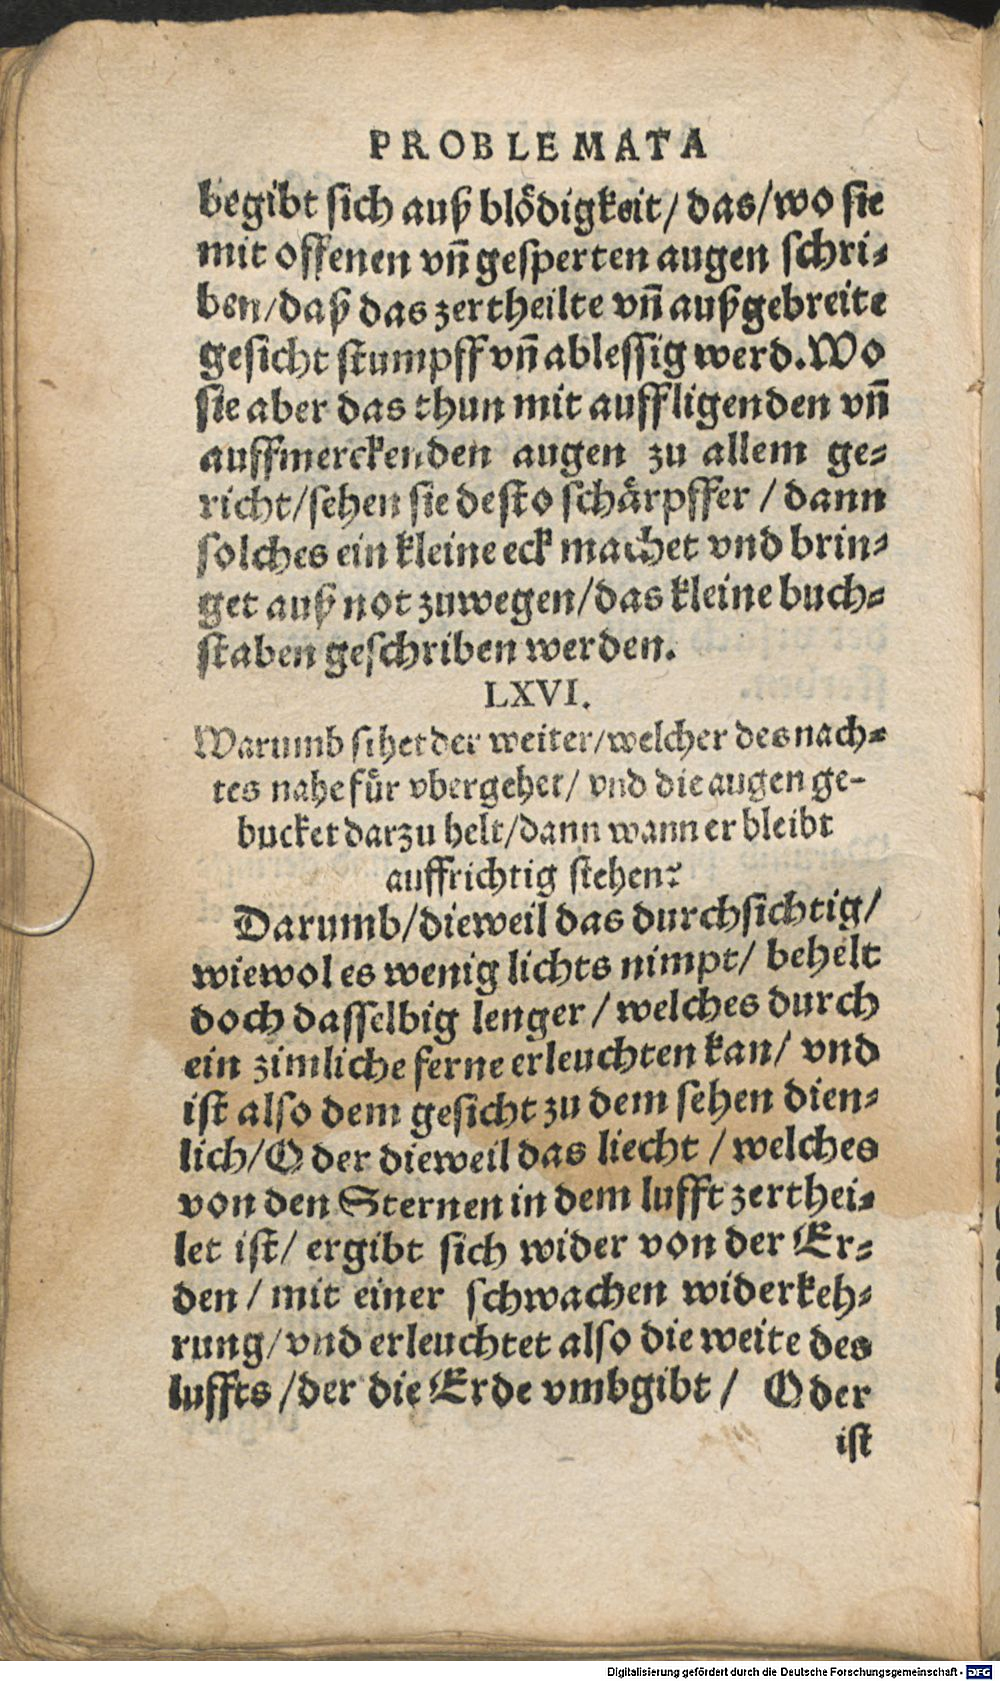 PROBLEMATA
begibt sich auß blödigkeit/ das/wo sie
mit offenen vñ gesperten augen schri-
ben/daß das zertheilte vñ außgebreite
gesicht stumpff vñ ablessig werd. Wo
sie aber das thun mit auffligenden vñ
auffmerckenden augen zu allem ge-
richt/sehen sie desto schärpffer / dann
solches ein kleine eck machet vnd brin-
get auß not zuwegen/das kleine buch-
staben geschriben werden.
LXVI.
Warumb sihet der weiter/welcher des nach-
tes nahe für vbergehet/ vnd die augen ge-
bucket darzu helt/dann wann er bleibt
auffrichtig stehen?
Darumb/dieweil das durchsichtig/
wiewol es wenig lichts nimpt/ behelt
doch dasselbig lenger / welches durch
ein zimliche ferne erleuchten kan/ vnd
ist also dem gesicht zu dem sehen dien-
lich/Oder dieweil das liecht / welches
von den Sternen in dem lufft zerthei-
let ist/ ergibt sich wider von der Er-
den / mit einer schwachen widerkeh-
rung/vnd erleuchtet also die weite des
luffts /der die Erde vmbgibt / Oder
ist
Digitalisierung gefördert durch die Deutsche Forschungsgemeinschaft - DFG